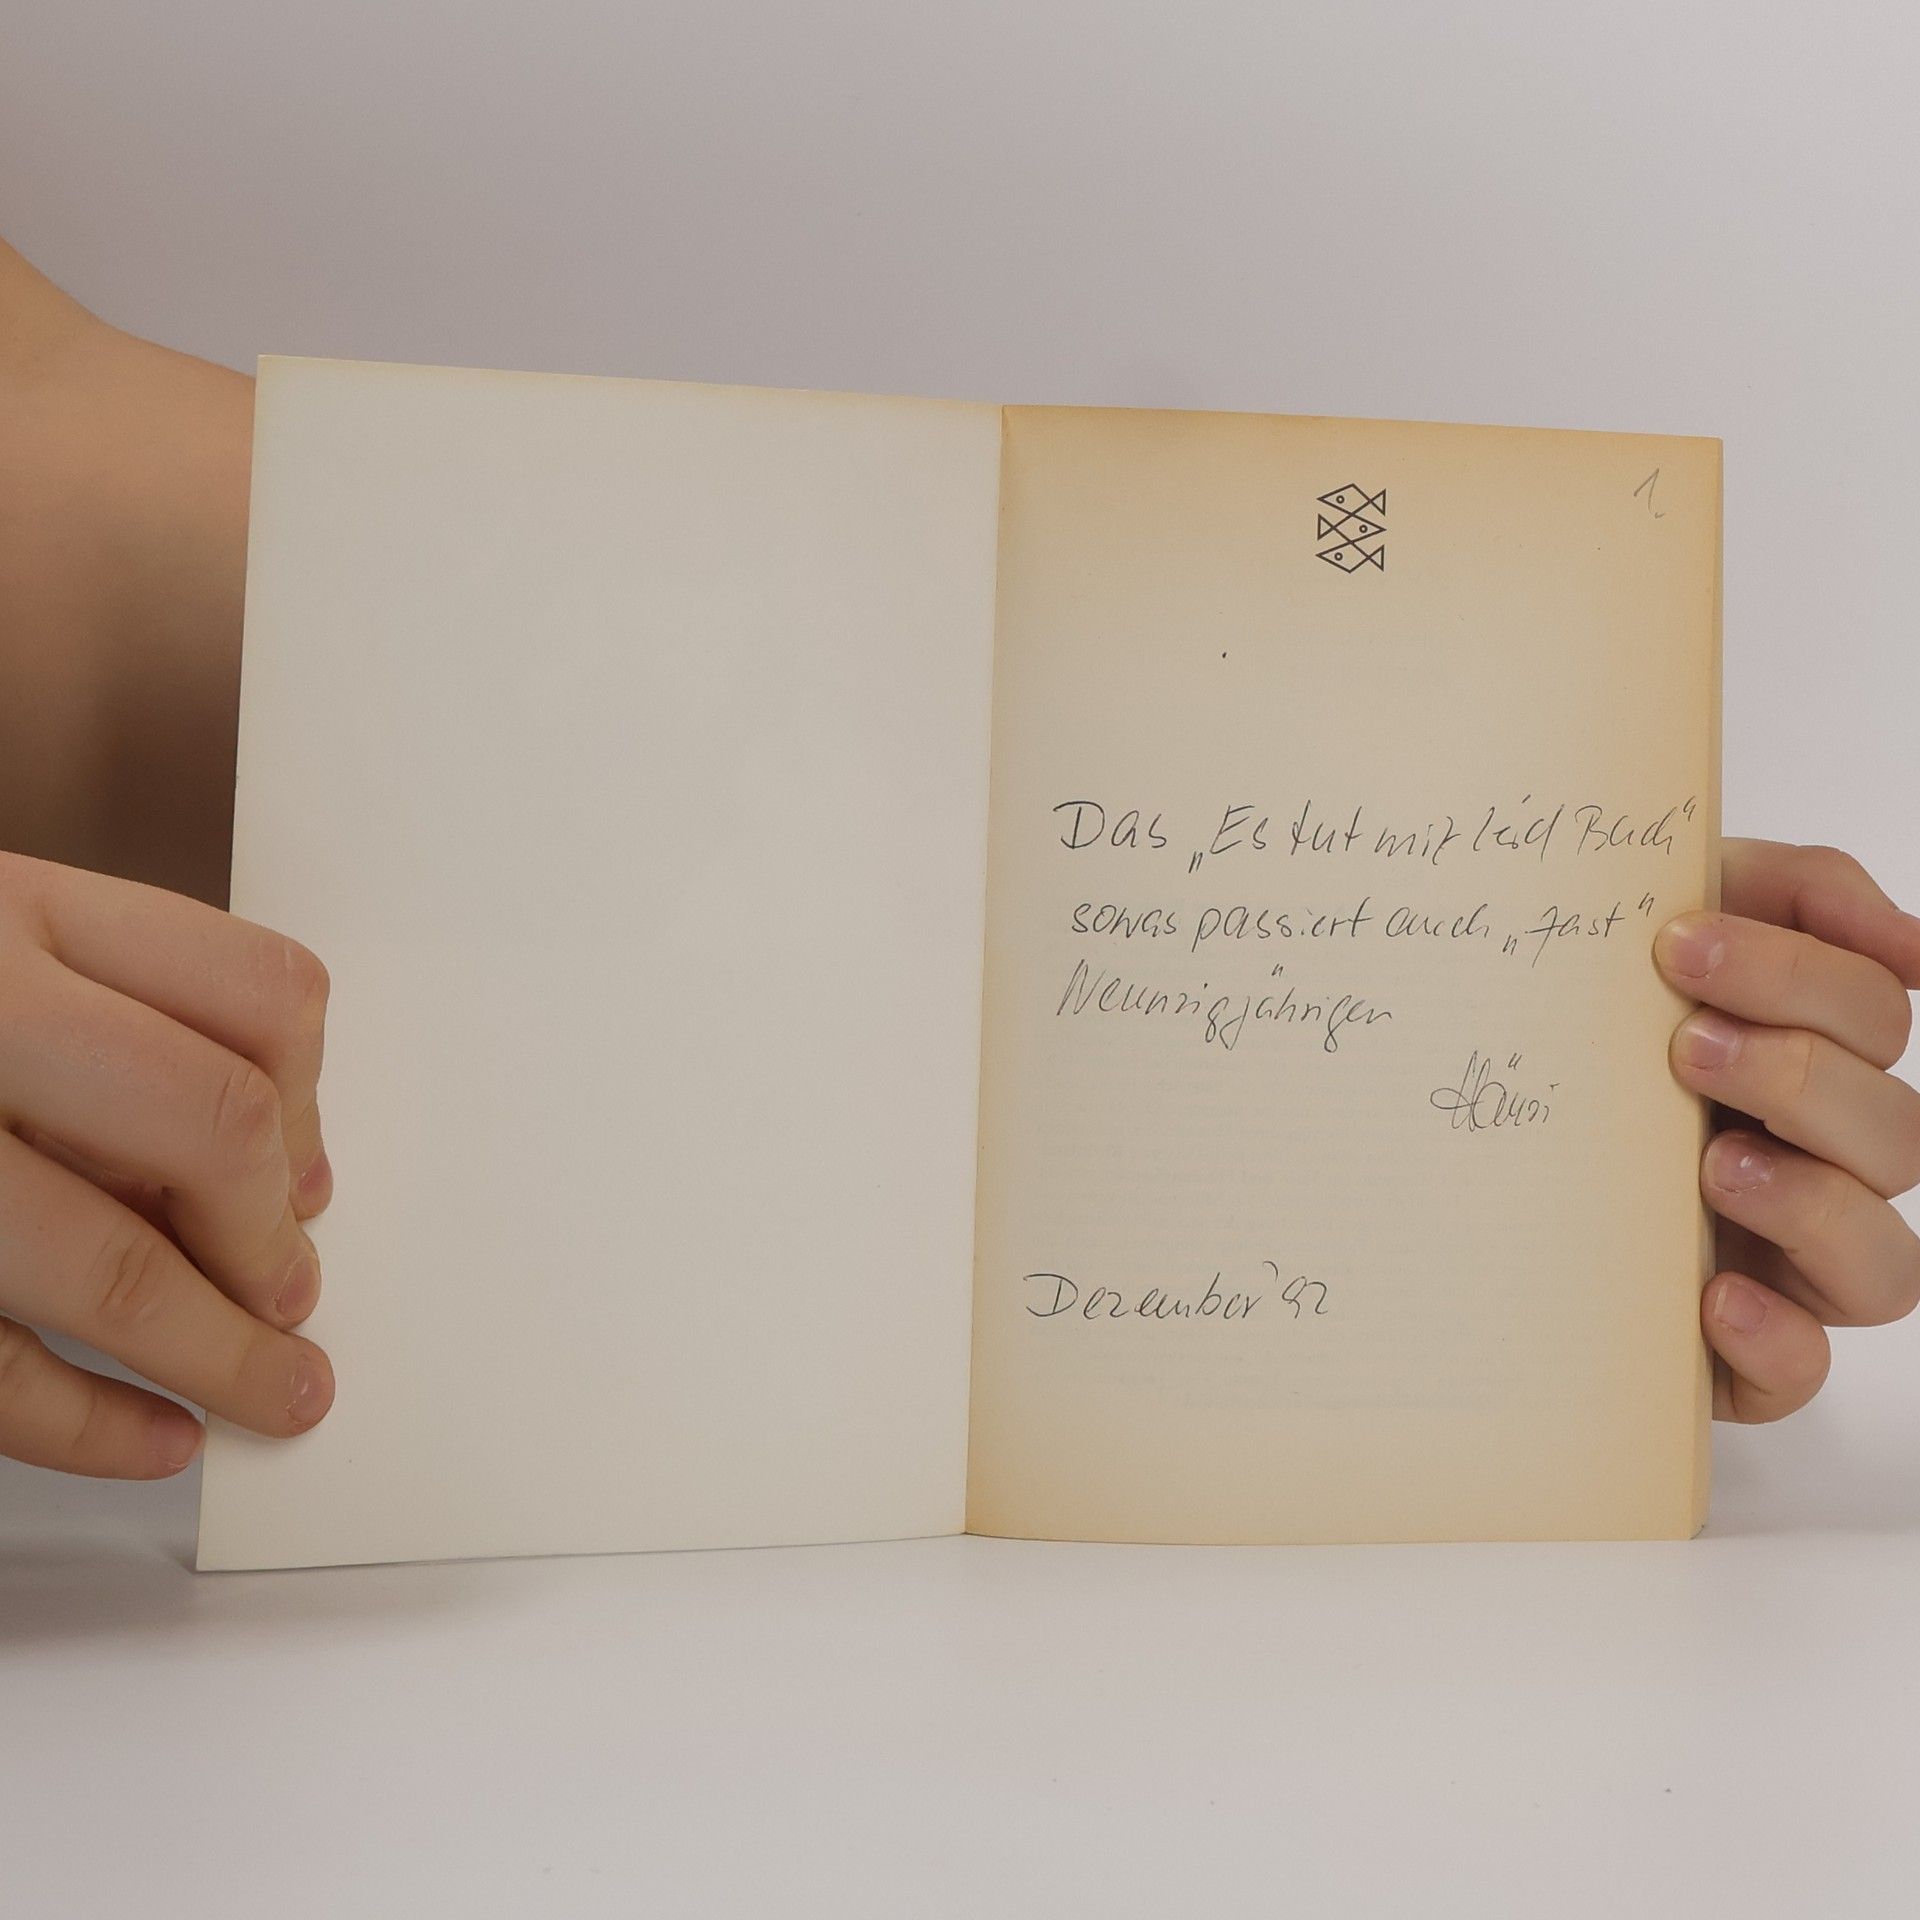 1.
Das „Es tut mir leid Buch“
sowas passiert auch „fast“
Neunzigjährigen
Dezember '92